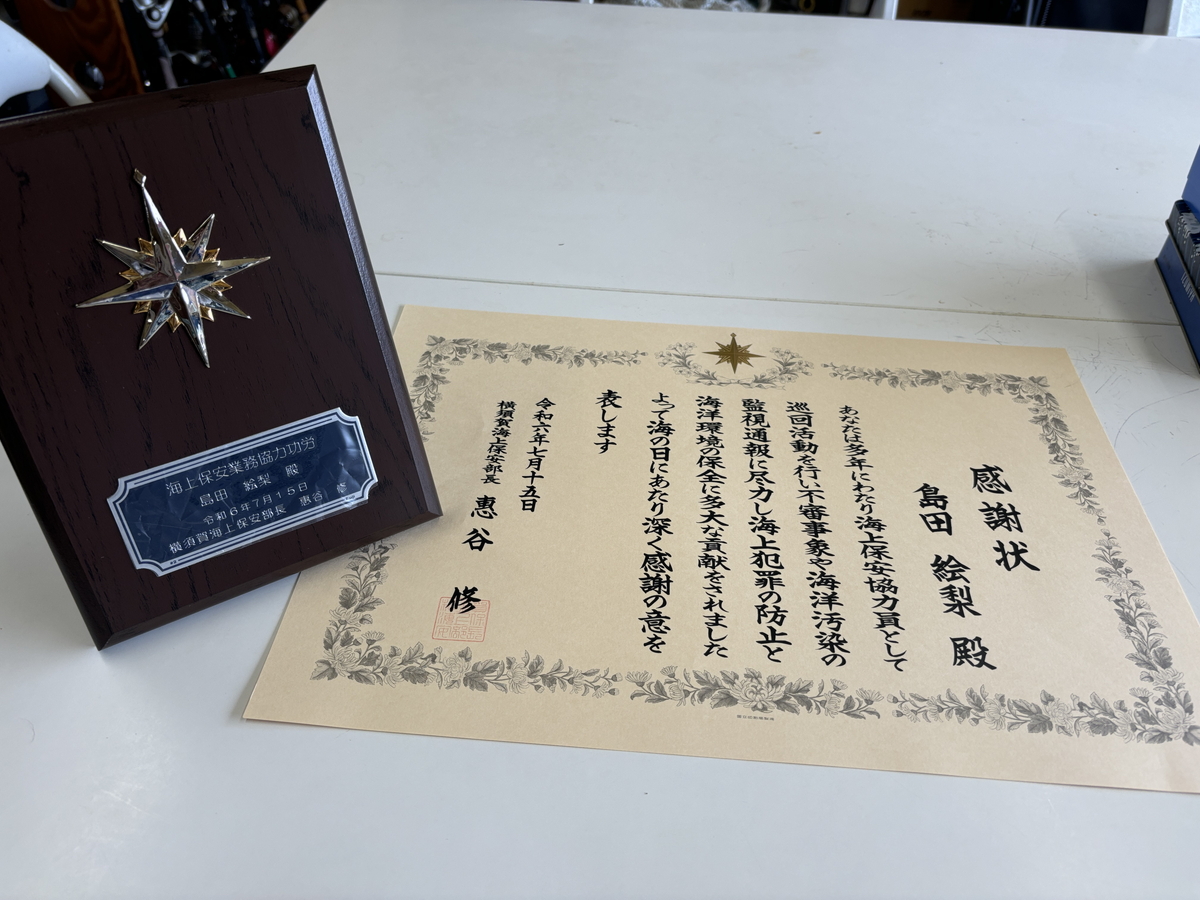 海上保安業務協力功労
島田 絵梨 殿
令和6年7月15日
横須賀海上保安部長 惠谷 修
感謝状
島田 絵梨 殿
あなたは多年にわたり海上保安協力員として
巡回活動を行い不審事象や海洋汚染の
監視通報に尽力し海上犯罪の防止と
海洋環境の保全に多大な貢献をされました
よって海の日にあたり深く感謝の意を
表します
令和六年七月十五日
横須賀海上保安部長 惠谷 修